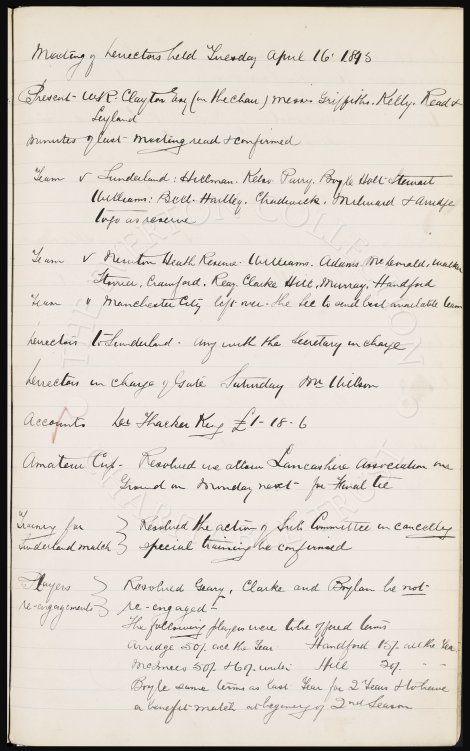 Meeting of Directors held Tuesday April 16. 1895
Present - W.R. Clayton Esq (in the chair) Messrs Griffiths. Kelly. Read &
Leyland
Minutes of last Meeting read & confirmed
Team v Sunderland: Hillman. Kelso Parry. Boyle Holt Stewart
Williams: Bell. Hartley. Chadwick. Milward & Arridge
to go as reserve
Team v Newton Heath Reserve. Williams. Adams. McDonald, Walker
Storrier, Crawford. Reay Clarke Hill, Murray, Handford
Team v Manchester City left over. the Sec to send best available team
Directors to Sunderland - any with the Secretary in charge
Directors in charge of Gate Saturday Mr Wilson
Accounts Dr Thacker King £1-18-6
Amateur Cup - Resolved we allow Lancashire Association our
Ground on Monday next for Final tie
Training for } Resolved the action of Sub Committee in cancelling
Sunderland match } special training be confirmed
Players } Resolved Geary, Clarke and Boylan be not
re-engagements } re-engaged -
The following players were to be offered terms
Arridge 50/ all the Year Handford 15/ all the Year
McInnes 50/ & 60/ Hill 20/ " "
Boyle same terms as last Year for 2 Years & to have
a benefit match at beginning of 2nd Season